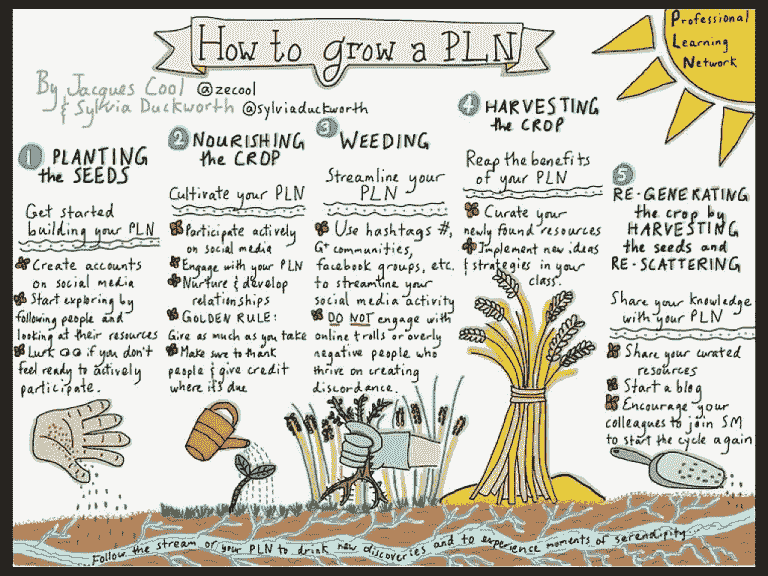 How to grow a PLN
Professional
Learning
Network
By Jacques Cool @zecool
& Sylvia Duckworth @sylviaduckworth
1 PLANTING
the SEEDS
Get started
building your PLN
Create accounts
on social media
Start exploring by
following people and
looking at their resources
Lurk if you don't
feel ready to actively
participate.
2 NOURISHING
the CROP
Cultivate your PLN
Participate actively
on social media
Engage with your PLN
Nurture & develop
relationships
GOLDEN RULE:
Give as much as you take
Make sure to thank
people & give credit
where it's due
3 WEEDING
Streamline your
PLN
Use hashtags #,
G+ communities,
facebook groups, etc.
to streamline your
social media activity
DO NOT engage with
online trolls or overly
negative people who
thrive on creating
discordance.
4 HARVESTING
the CROP
Reap the benefits
of your PLN
Curate your
newly found resources
Implement new ideas
& strategies in your
class.
5
RE-GENERATING
the crop by
HARVESTING
the seeds and
RE-SCATTERING
Share your knowledge
with your PLN
Share your curated
resources
Start a blog
Encourage your
colleagues to join SM
to start the cycle again
Follow the stream of your PLN to drink new discoveries and to experience moments of serendipity